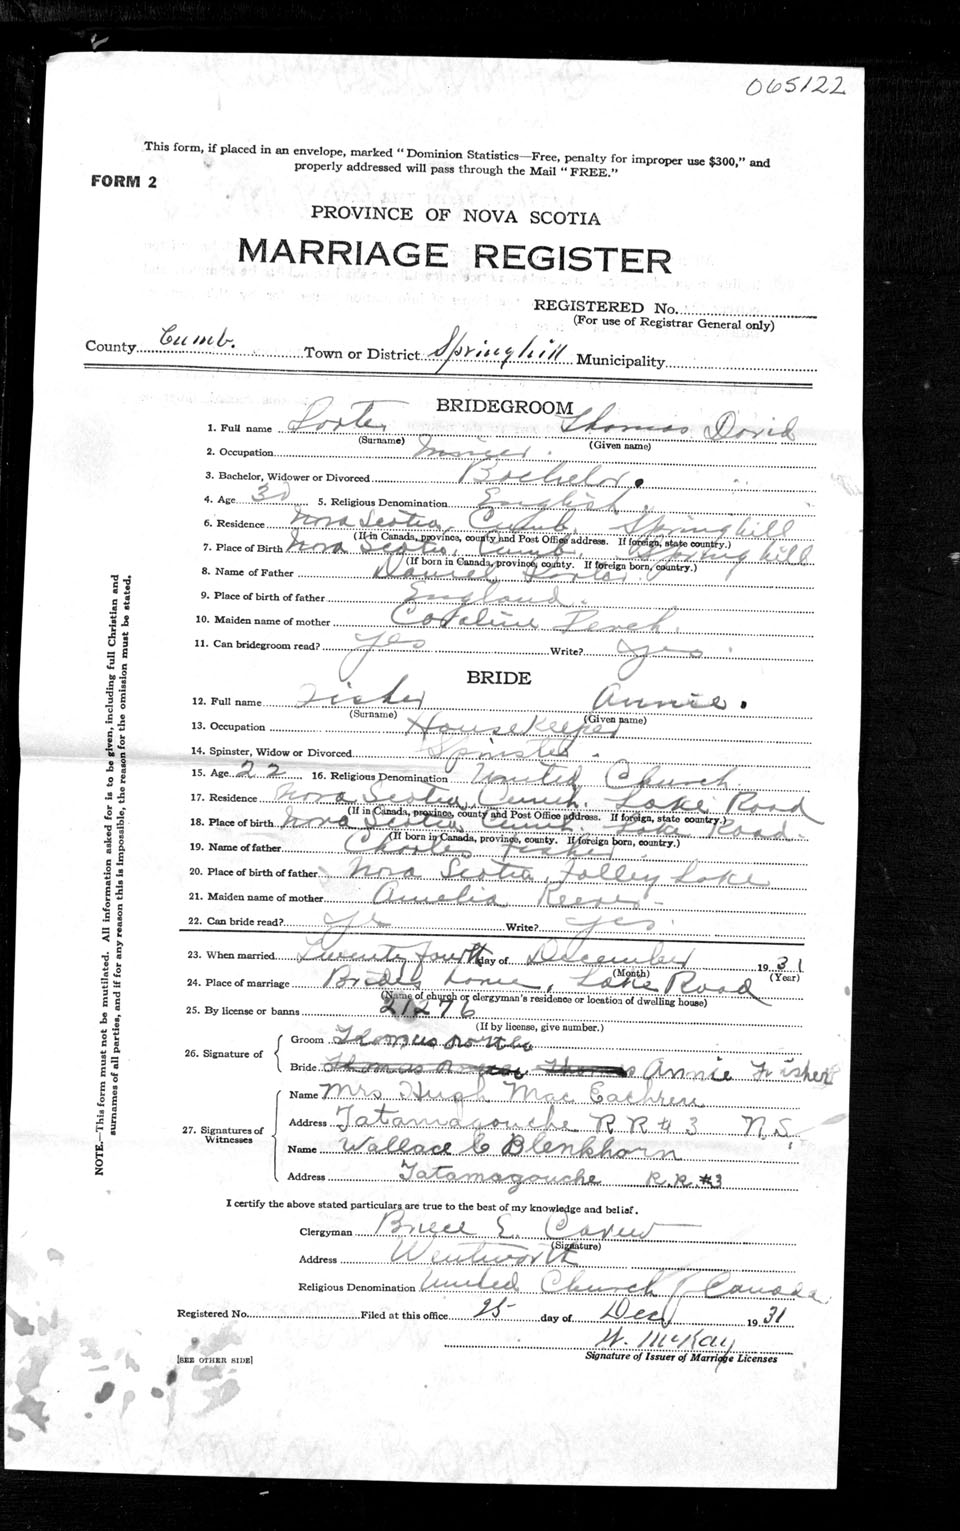 065122
This form, if placed in an envelope, marked "Dominion Statistics—Free, penalty for improper use $300," and
properly addressed will pass through the Mail "FREE."
FORM 2
PROVINCE OF NOVA SCOTIA
MARRIAGE REGISTER
REGISTERED No.
(For use of Registrar General only)
County Cumb. Town or District Springhill Municipality
BRIDEGROOM
1. Full name Thomas David
(Surname) (Given name)
2. Occupation Miner.
3. Bachelor, Widower or Divorced Bachelor.
4. Age 30 5. Religious Denomination English
6. Residence Nova Scotia, Cumb. Springhill
(If in Canada, province, county and Post Office address. If foreign, state country.)
7. Place of Birth Nova Scotia, Cumb. Springhill
(If born in Canada, province, county. If foreign born, country.)
8. Name of Father Daniel
9. Place of birth of father England.
10. Maiden name of mother Caroline
11. Can bridegroom read? yes Write? yes.
BRIDE
12. Full name Fisher Annie.
(Surname) (Given name)
13. Occupation Housekeeper
14. Spinster, Widow or Divorced Spinster.
15. Age 22 16. Religious Denomination United Church
17. Residence Nova Scotia, Cumb. Lake Road
(If in Canada, province, county and Post Office address. If foreign, state country.)
18. Place of birth Nova Scotia, Cumb. Lake Road.
(If born in Canada, province, county. If foreign born, country.)
19. Name of father Charles Fisher.
20. Place of birth of father Nova Scotia, Folley Lake
21. Maiden name of mother Amelia
22. Can bride read? yes Write? yes.
23. When married Twenty fourth day of December 1931
(Month) (Year)
24. Place of marriage Brides home, Lake Road
(Name of church or clergyman's residence or location of dwelling house)
25. By license or banns 21276
(If by license, give number.)
26. Signature of
Groom Thomas
Bride Annie Fisher
27. Signatures of Witnesses
Name Mrs Hugh Mac Eachren
Address Tatamagouche R R # 3 N.S.
Name Wallace C Blenkhorn
Address Tatamagouche R.R. #3
I certify the above stated particulars are true to the best of my knowledge and belief.
Clergyman E.
(Signature)
Address Wentworth
Religious Denomination United Church of Canada
Registered No. Filed at this office 25 day of Dec 1931
W. McKay
Signature of Issuer of Marriage Licenses
[SEE OTHER SIDE]
NOTE.—This form must not be mutilated. All information asked for is to be given, including full Christian and
surnames of all parties, and if for any reason this is impossible, the reason for the omission must be stated.